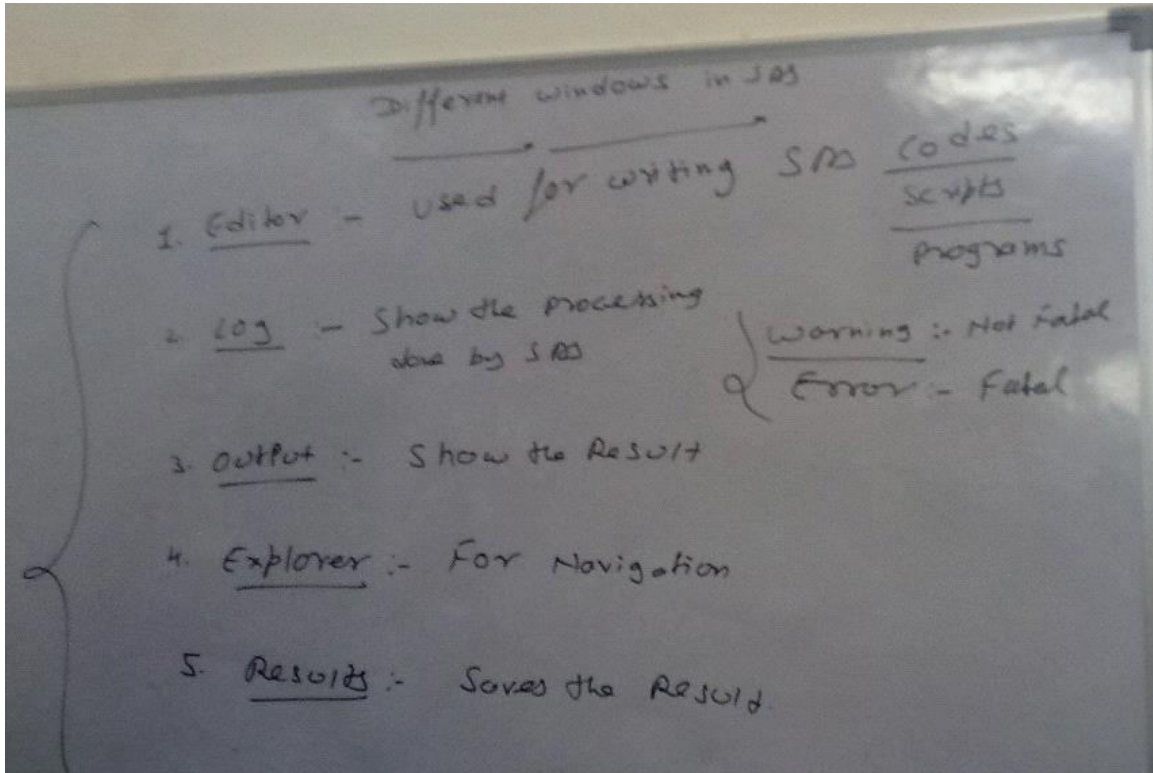 Different windows in SAS
1. Editor :- used for writing SAS codes
scripts
programs
2. Log :- Show the processing
done by SAS
Warning :- Not Fatal
Error :- Fatal
3. Output :- Show the Result
4. Explorer :- For Navigation
5. Results :- Saves the Result.